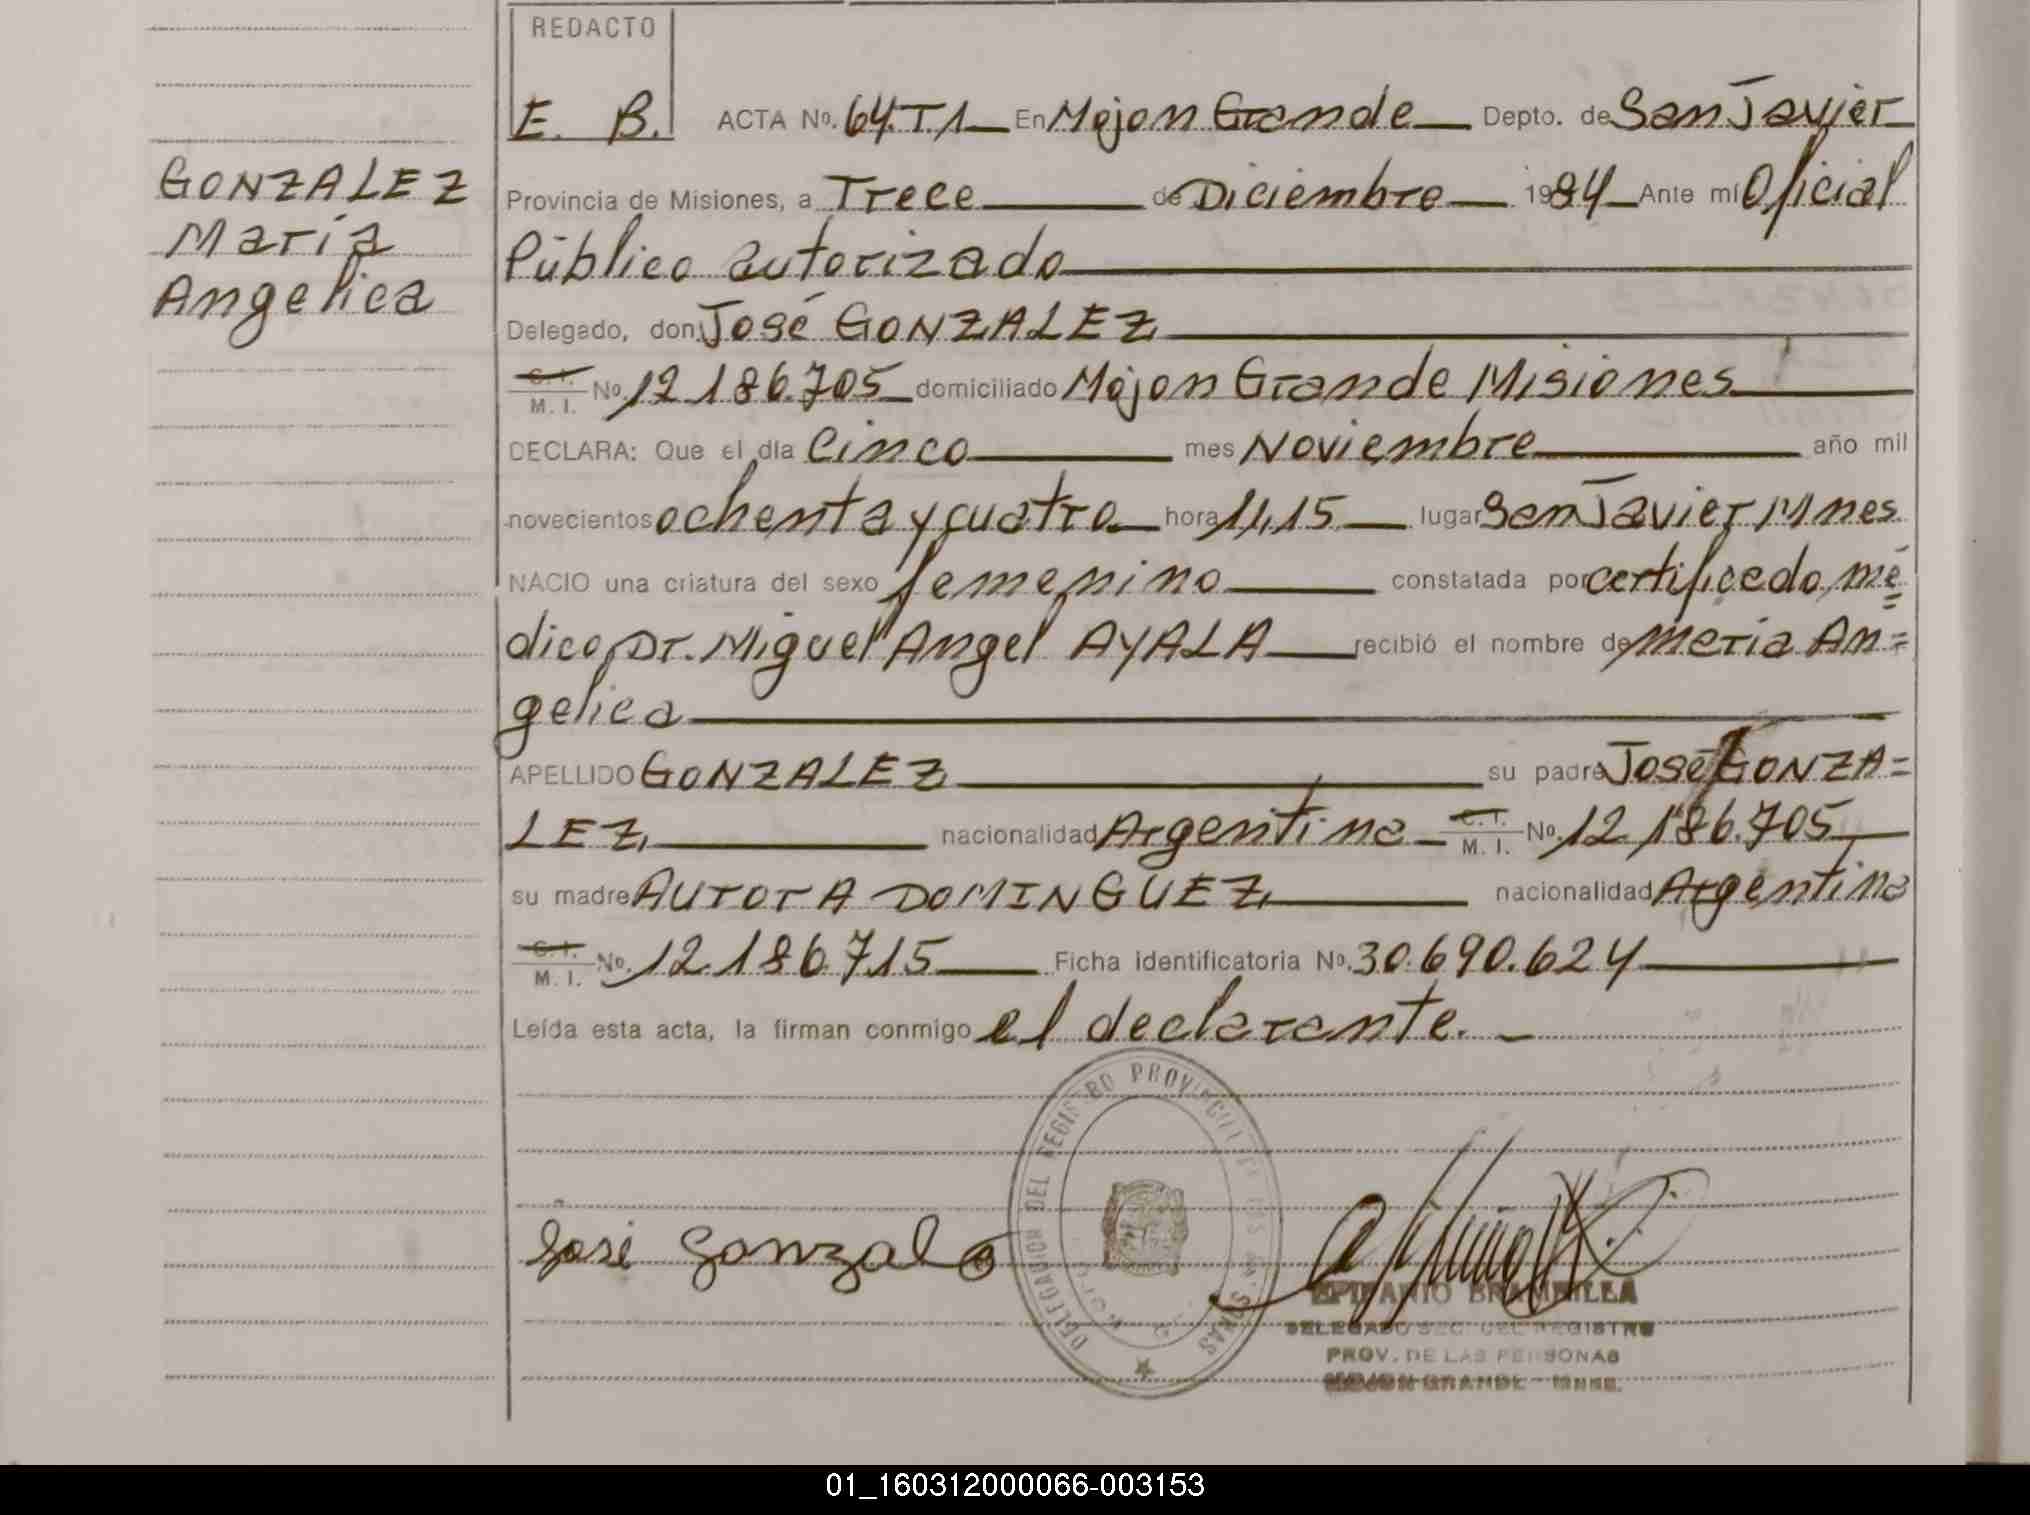 REDACTO
E. B.
ACTA Nº. 64.T.1 En Mojon Grande Depto. de San Javier
GONZALEZ
María
Angelica
Provincia de Misiones, a Trece de Diciembre 1984 Ante mí Oficial
Público autorizado
Delegado, don José GONZALEZ
C. I. M. I. Nº. 12.186.705 domiciliado Mojon Grande Misiones
DECLARA: Que el día Cinco mes Noviembre año mil
novecientos ochenta y cuatro hora 11,15 lugar San Javier Mnes.
NACIO una criatura del sexo femenino constatada por certificado mé=
dico Dr. Miguel Angel AYALA recibió el nombre de María An=
gelica
APELLIDO GONZALEZ su padre José GONZA=
LEZ nacionalidad Argentina C. I. M. I. Nº. 12.186.705
su madre AUrorA DOMINGUEZ nacionalidad Argentina
C. I. M. I. Nº. 12.186.715 Ficha identificatoria Nº. 30.690.624
Leída esta acta, la firman conmigo el declarante.
DELEGACION DEL REGISTRO PROVINCIAL DE LAS PERSONAS
José Gonzalez
EPIFANIO BRAMBILLA
DELEGADO SEC. DEL REGISTRO
PROV. DE LAS PERSONAS
MOJON GRANDE - MNES.
01_160312000066-003153